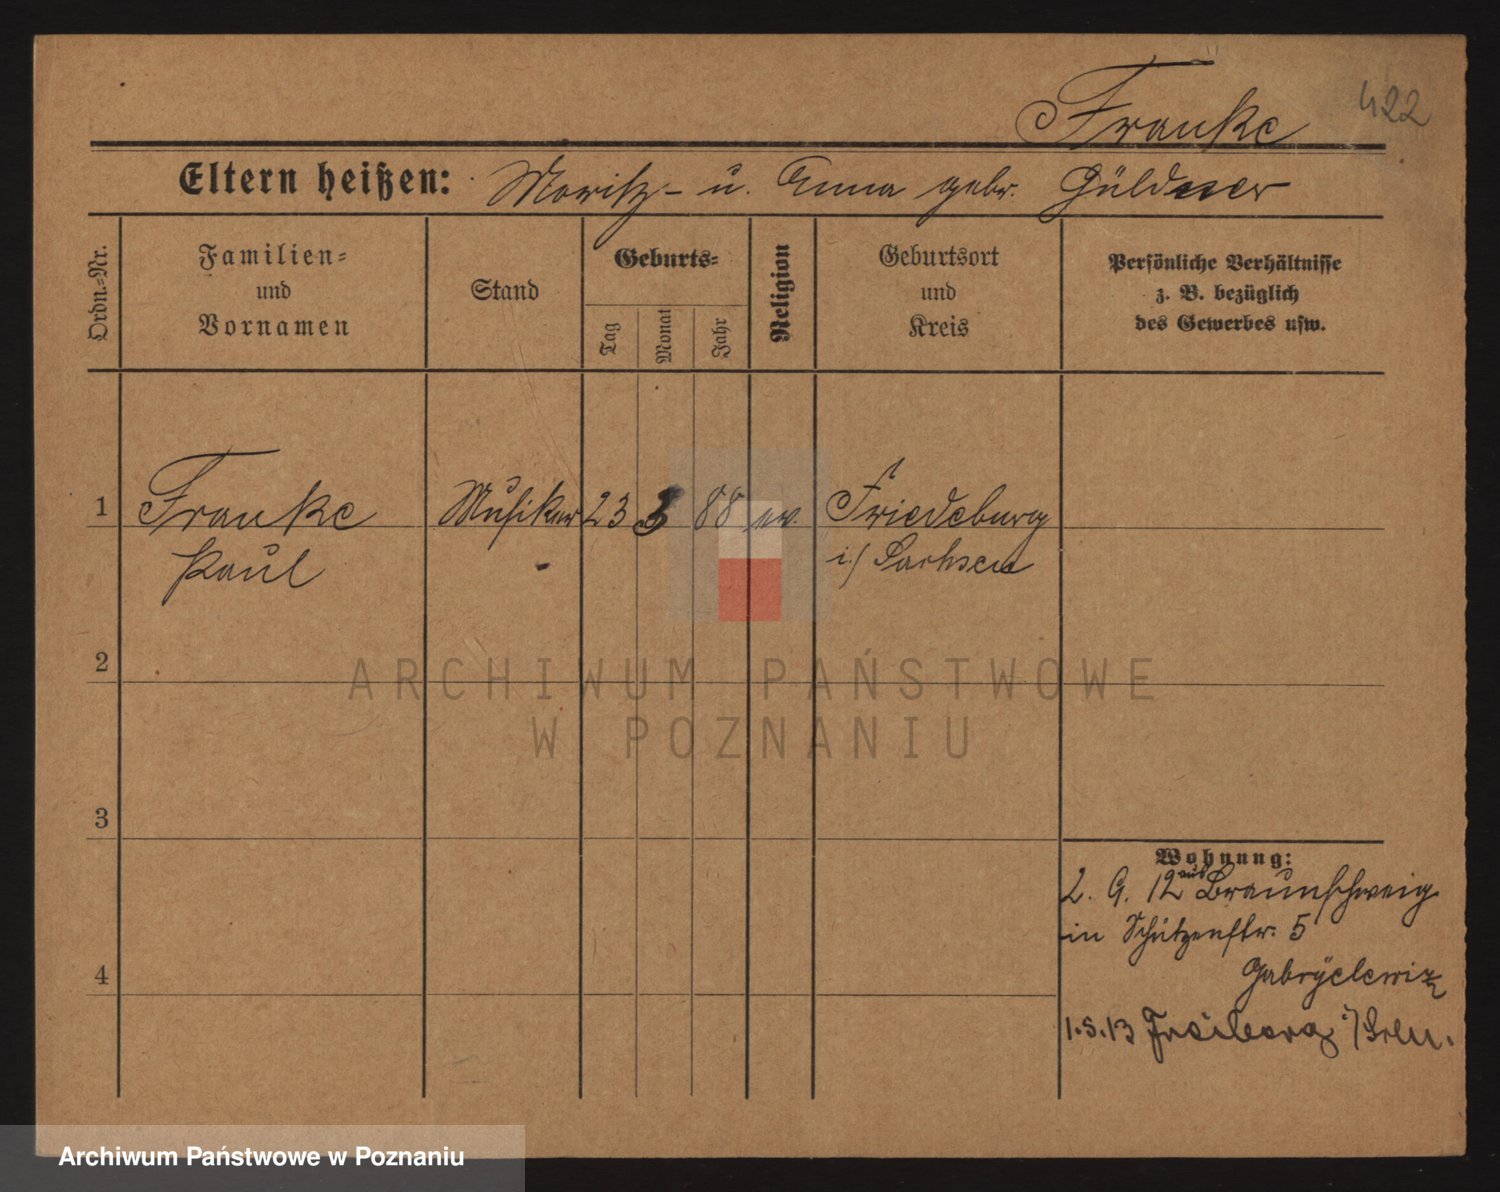 422
Franke
Eltern heißen: Moritz - u. Anna gebr. Güldner
Ordn.-Nr.
Familien-
und
Vornamen
Stand
Geburts-
Tag
Monat
Jahr
Religion
Geburtsort
und
Kreis
Persönliche Verhältnisse
z. B. bezüglich
des Gewerbes usw.
1 Franke Musiker 23 3 88 ev. Friedeburg
Paul i/ Sachsen
2
ARCHIWUM PAŃSTWOWE
W POZNANIU
3
Wohnung:
2. 9. 12 aus Braunschweig
in Schützenstr. 5
Gabryelewiz
4
1.5.13 Freiberg i/
Archiwum Państwowe w Poznaniu